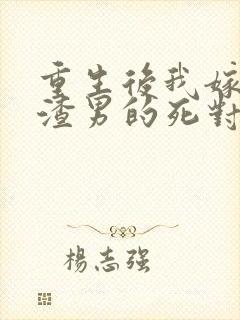 重生後我嫁
渣男的死對
楊志强